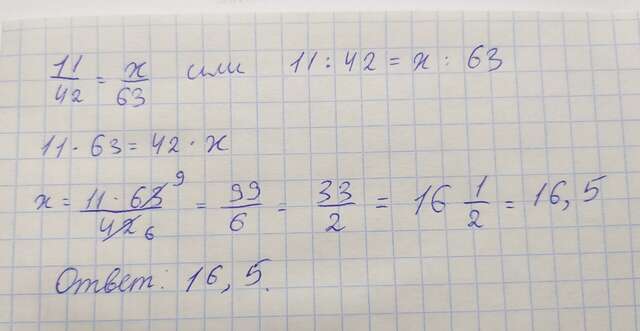 11/42 = x/63 или 11 : 42 = x : 63
11 · 63 = 42 · x
x = 11 · 63 9 / 42 6 = 99/6 = 33/2 = 16 1/2 = 16,5
Ответ: 16,5.